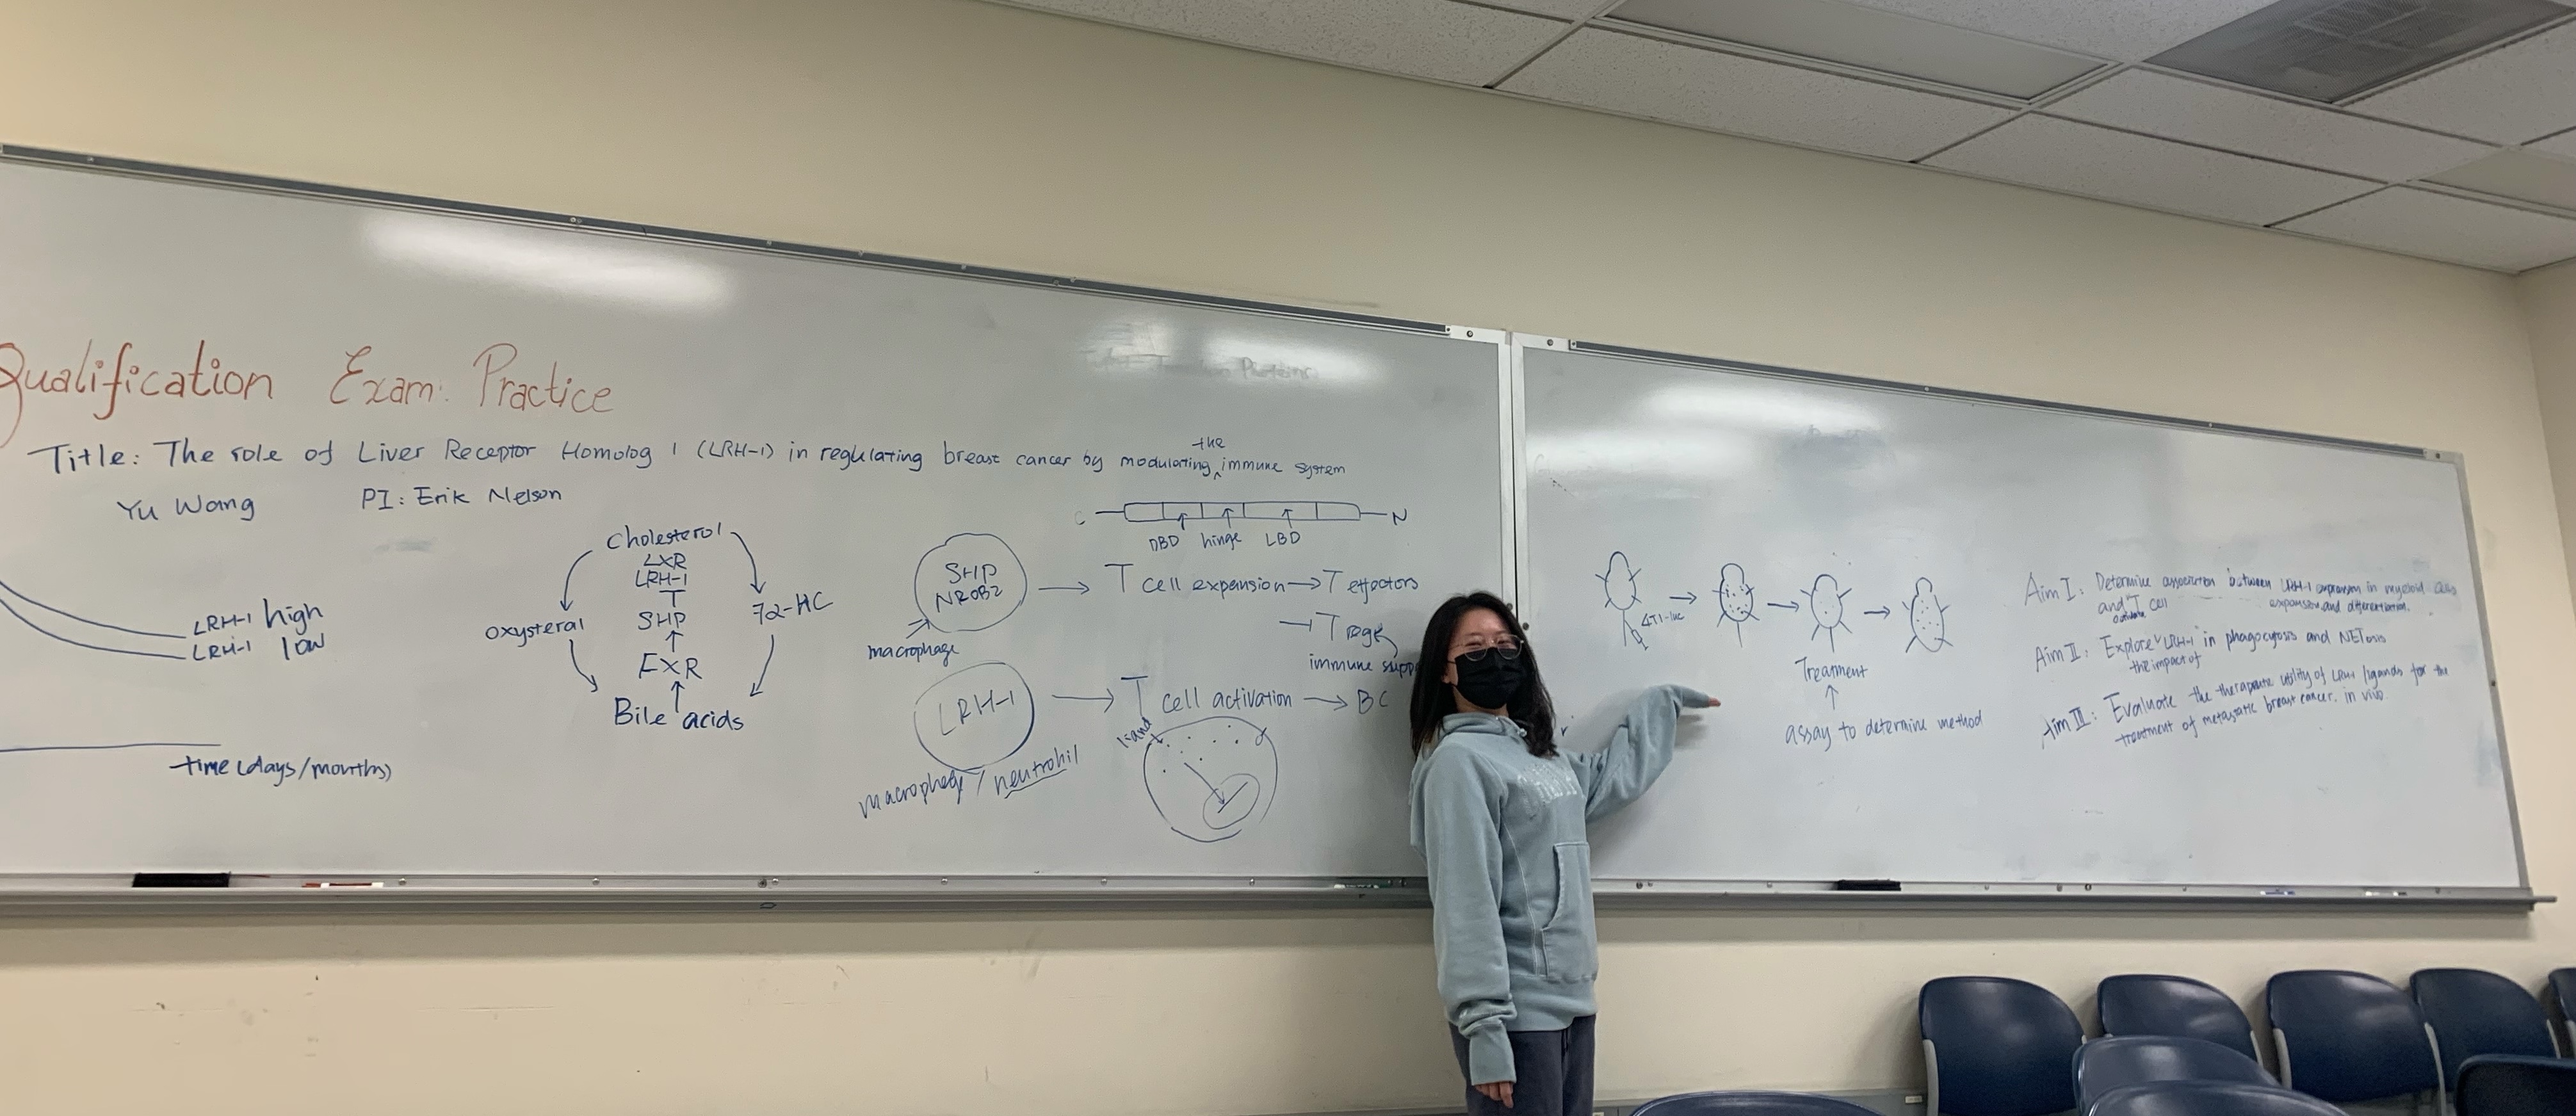 Qualification Exam: Practice
Title: The role of Liver Receptor Homolog 1 (LRH-1) in regulating breast cancer by modulating the immune system
Yu Wang PI: Erik Nelson
LRH-1 high
LRH-1 low
time (days/months)
Cholesterol
LXR
LRH-1
SHP
FXR
Bile acids
oxysteral
7α-HC
C N
DBD hinge LBD
SHP
NR0B2
macrophage
T cell expansion → T effectors
⊣ T regs
immune supp
LRH-1
macrophage / neutrohil
T cell activation → BC
ligand
4T1-luc
Treatment
↑
assay to determine method
Aim I: Determine association between LRH-1 expression in myeloid cells
and T cell expansion and differentiation.
Aim II: Explore the impact of LRH-1 in phagocytosis and NETosis
Aim III: Evaluate the therapeutic utility of LRH-1 ligands for the
treatment of metastatic breast cancer. in vivo.